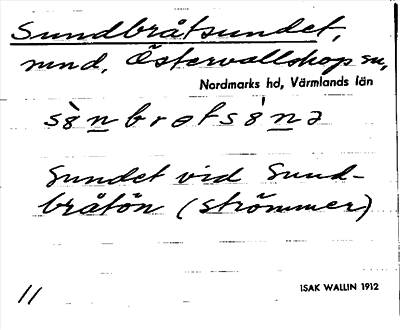 Sundbråtsundet,
sund, Östervallskogs sn,
Nordmarks hd, Värmlands län
Sundet vid Sund-
bråtön (strömmer)
11
ISAK WALLIN 1912